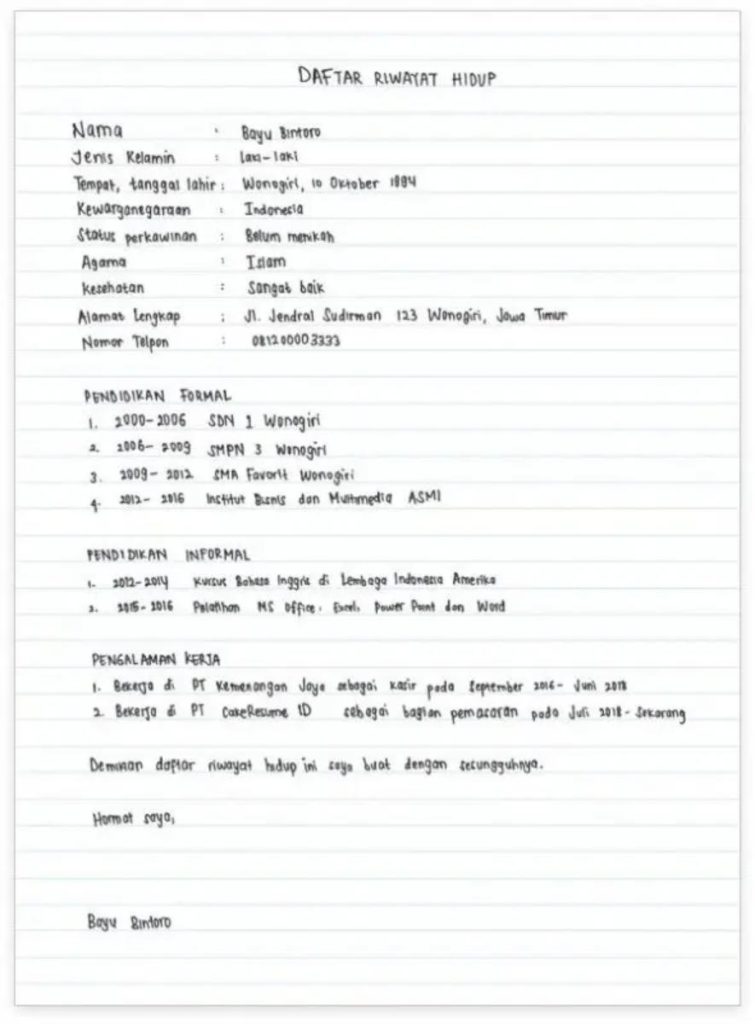 DAFTAR RIWAYAT HIDUP
Nama : Bayu Bintoro
Jenis Kelamin : Laki-laki
Tempat, tanggal lahir : Wonogiri, 10 Oktober 1994
Kewarganegaraan : Indonesia
Status perkawinan : Belum menikah
Agama : Islam
Kesehatan : Sangat baik
Alamat Lengkap : Jl. Jendral Sudirman 123 Wonogiri, Jawa Timur
Nomor Telpon : 081200003333
PENDIDIKAN FORMAL
1. 2000-2006 SDN 1 Wonogiri
2. 2006-2009 SMPN 3 Wonogiri
3. 2009-2012 SMA Favorit Wonogiri
4. 2012-2016 Institut Bisnis dan Multimedia ASMI
PENDIDIKAN INFORMAL
1. 2012-2014 Kursus Bahasa Inggris di Lembaga Indonesia Amerika
2. 2015-2016 Pelatihan MS Office, Excel, Power Point dan Word
PENGALAMAN KERJA
1. Bekerja di PT Kemenangan Jaya sebagai kasir pada September 2016- Juni 2018
2. Bekerja di PT CakeResume ID sebagai bagian pemasaran pada Juli 2018-Sekarang
Demikian daftar riwayat hidup ini saya buat dengan sesungguhnya.
Hormat saya,
Bayu Bintoro